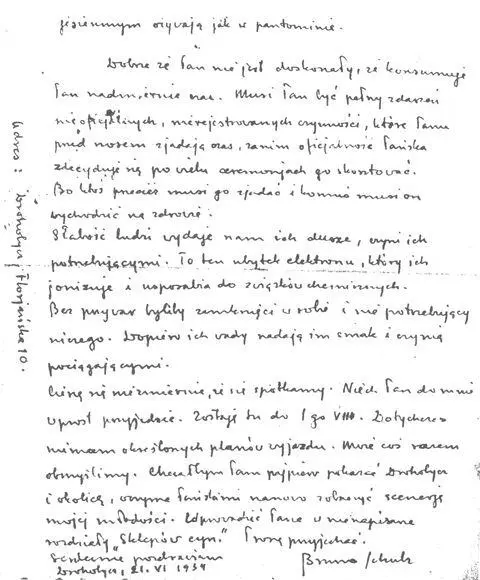 jesiennym ożywają jak w pantominie.
Dobrze że Pan nie jest doskonały, że konsumuje
Pan nadmiernie czas. Musi Pan być pełny zdarzeń
nieoficjalnych, nierejestrowanych czynności, które Panu
przed nosem zjadają czas, zanim oficjalność Pańska
zdecyduje się po wielu ceremoniach go skosztować.
Bo ktoś przecież musi go zjadać i komuś musi on
wychodzić na zdrowie.
Słabość ludzi wydaje nam ich dusze, czyni ich
potrzebującymi. To ten ubytek elektronu, który ich
jonizuje i usposabia do związków chemicznych.
Bez przywar byliby zamknięci w sobie i nie potrzebujący
niczego. Dopiero ich wady nadają im smak i czynią
pociągającymi.
Cieszę się niezmiernie, że się spotkamy. Niech Pan do mnie
wprost przyjedzie. Zostaję tu do 1go VIII. Dotychczas
nie mam określonych planów wyjazdu. Może coś razem
obmyślimy. Chciałbym Panu pokazać Drohobycz
i okolicę, oczyma Pańskimi na nowo zobaczyć scenerję
mojej młodości. Wprowadzić Pana w nienapisane
rozdziały „Sklepów cyn." Proszę przyjechać.
Serdecznie pozdrawiam
Bruno Schulz
Drohobycz, 21. VI 1934
Adres: Drohobycz, Florjańska 10.